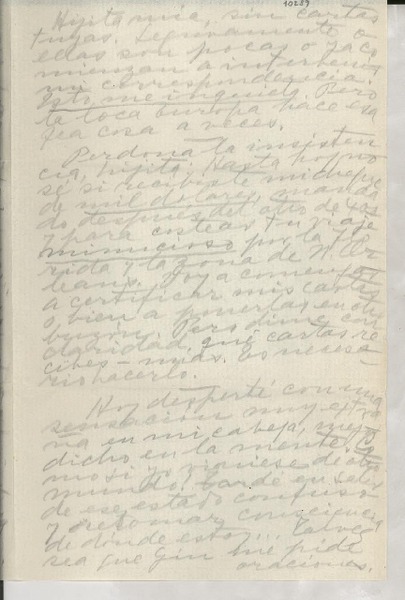 10289
Hijita mía, sin cartas
tuyas. Seguramente o
ellas son pocas o ya co
mienzan a intervenir
mi correspondencia.
Esto me inquieta. Pero
la loca Europa hace esa
fea cosa a veces.
Perdona la insisten
cia, hijita. Hasta hoy no
sé si recibiste mi cheque
de mil dólares, manda
do después del otro de
y para costear tu viaje
minucioso por la Flo
rida y la zona de N. Or
leans. Voy a comenzar
a certificar mis cartas
o bien a ponerlas en
buzón. Pero dime con
claridad qué cartas re
cibes mías. Es necesa
rio hacerlo.
Hoy desperté con una
sensación muy extra
ña en mi cabeza, mejor
dicho en la mente. Co
mo si yo viniese de otro
mundo. Tardé en salir
de ese estado confuso
y retomar consciencia
de dónde estoy... Talvez
sea que Gin me pide
oraciones.